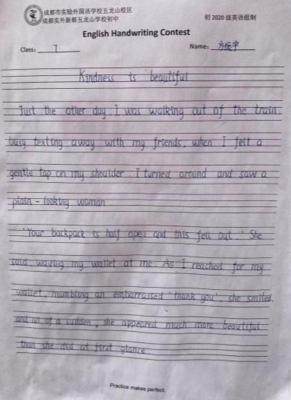 成都市实验外国语学校五龙山校区
成都实外新都五龙山学校初中
初 2020 级英语组制
English Handwriting Contest
Class: 7 Name:
Kindness is beautiful
Just the other day I was walking out of the train
busy texting away with my friends, when I felt a
gentle tap on my shoulder I turned around and saw a
plain-looking woman
"Your backpack is half open and this fell out" She
said waving my wallet at me. As I reached for my
wallet, mumbling an embarrassed 'thank you' she smiled
and all of a sudden, she appeared much more beautiful
than she did at first glance
Practice makes perfect.